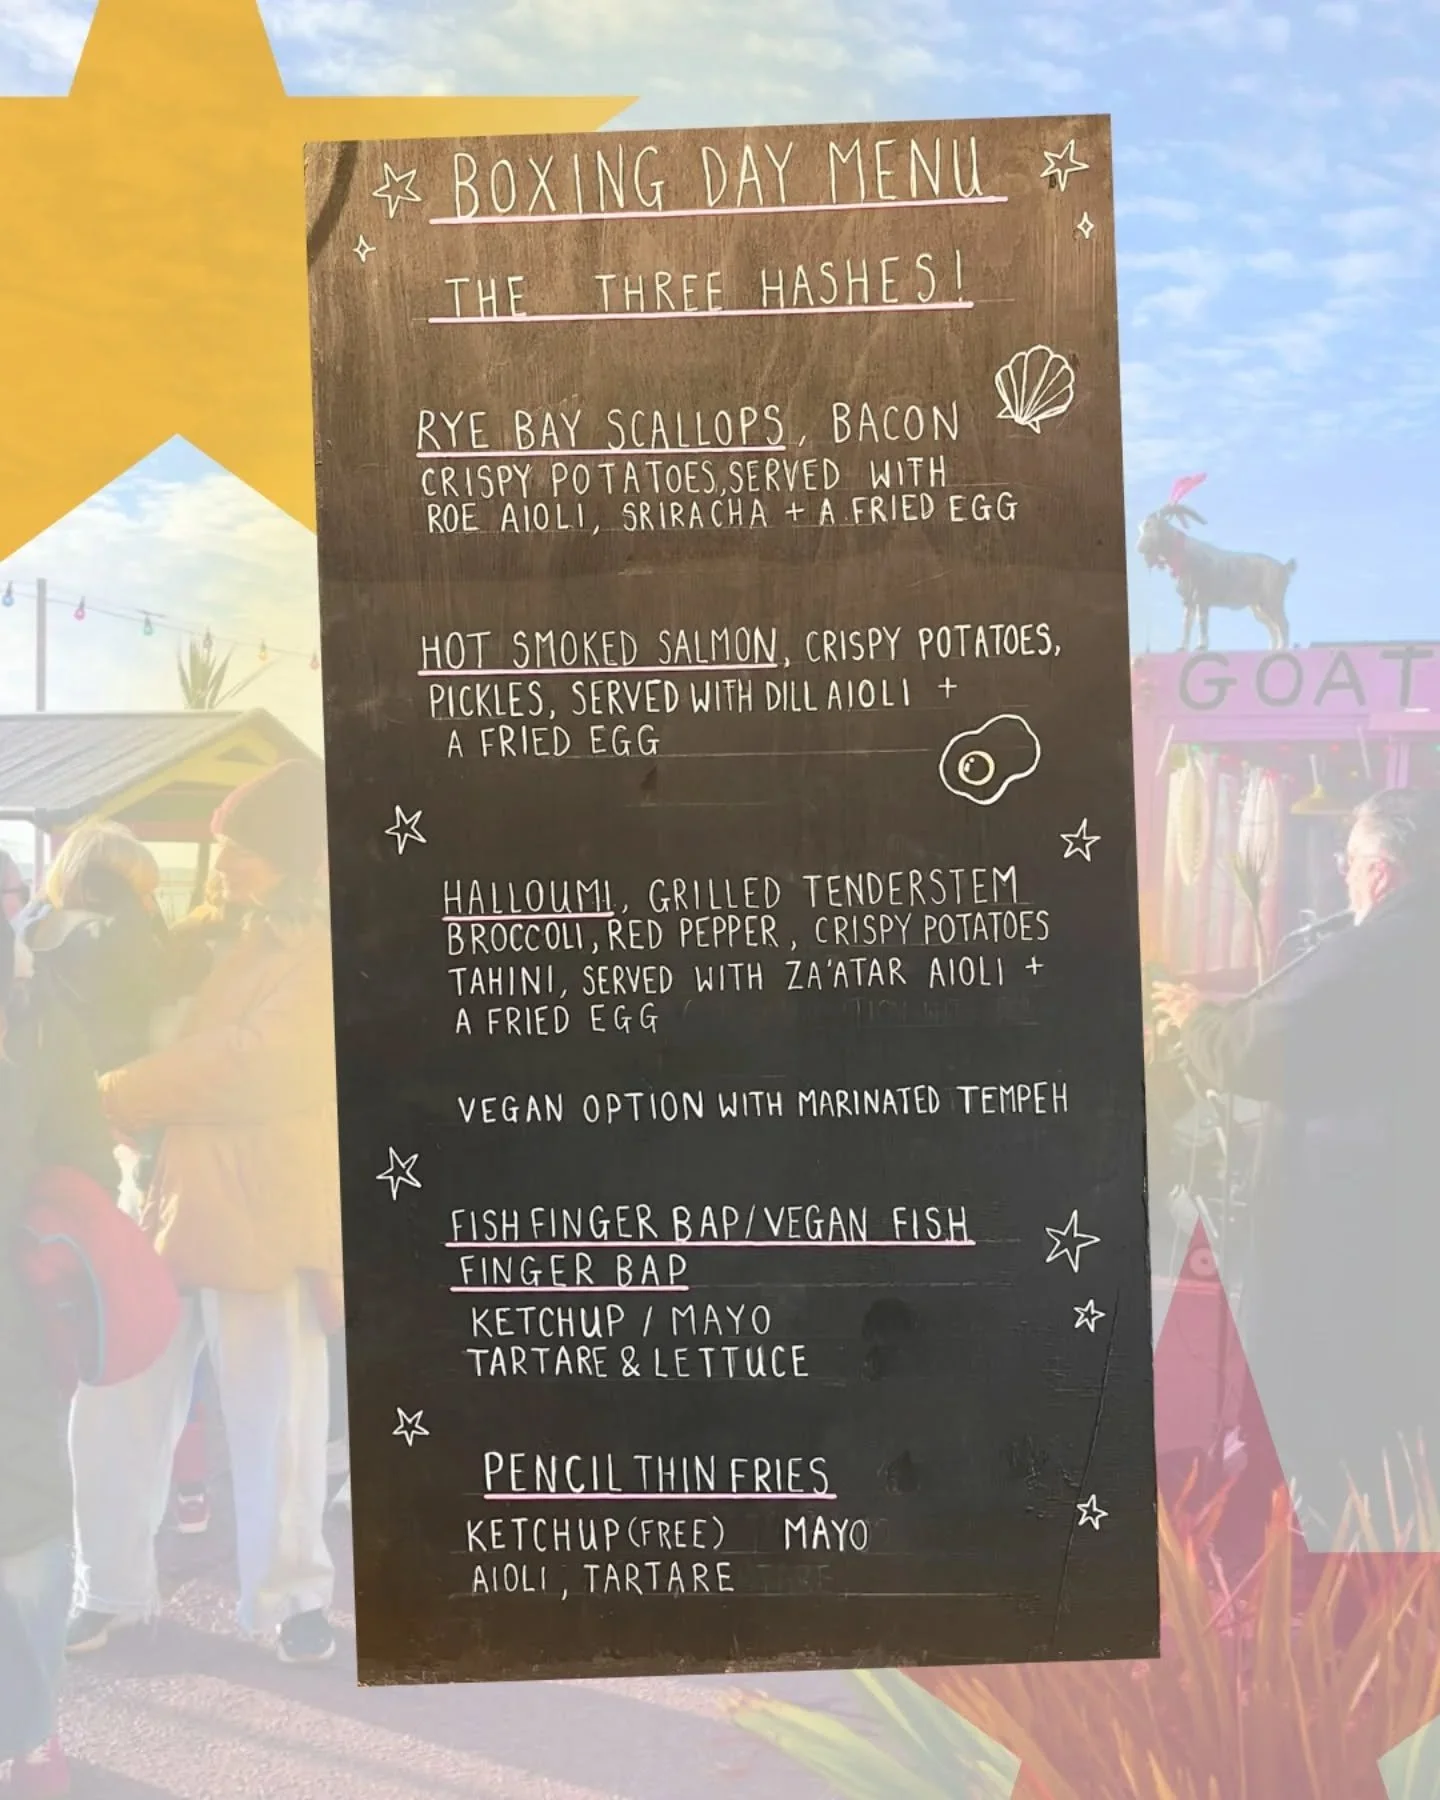 BOXING DAY MENU
THE THREE HASHES!
RYE BAY SCALLOPS, BACON
CRISPY POTATOES, SERVED WITH
ROE AIOLI, SRIRACHA + A FRIED EGG
HOT SMOKED SALMON, CRISPY POTATOES,
PICKLES, SERVED WITH DILL AIOLI +
A FRIED EGG
HALLOUMI, GRILLED TENDERSTEM
BROCCOLI, RED PEPPER, CRISPY POTATOES
TAHINI, SERVED WITH ZA'ATAR AIOLI +
A FRIED EGG
VEGAN OPTION WITH MARINATED TEMPEH
FISH FINGER BAP/VEGAN FISH
FINGER BAP
KETCHUP / MAYO
TARTARE & LETTUCE
PENCIL THIN FRIES
KETCHUP (FREE) MAYO
AIOLI, TARTARE
GOAT